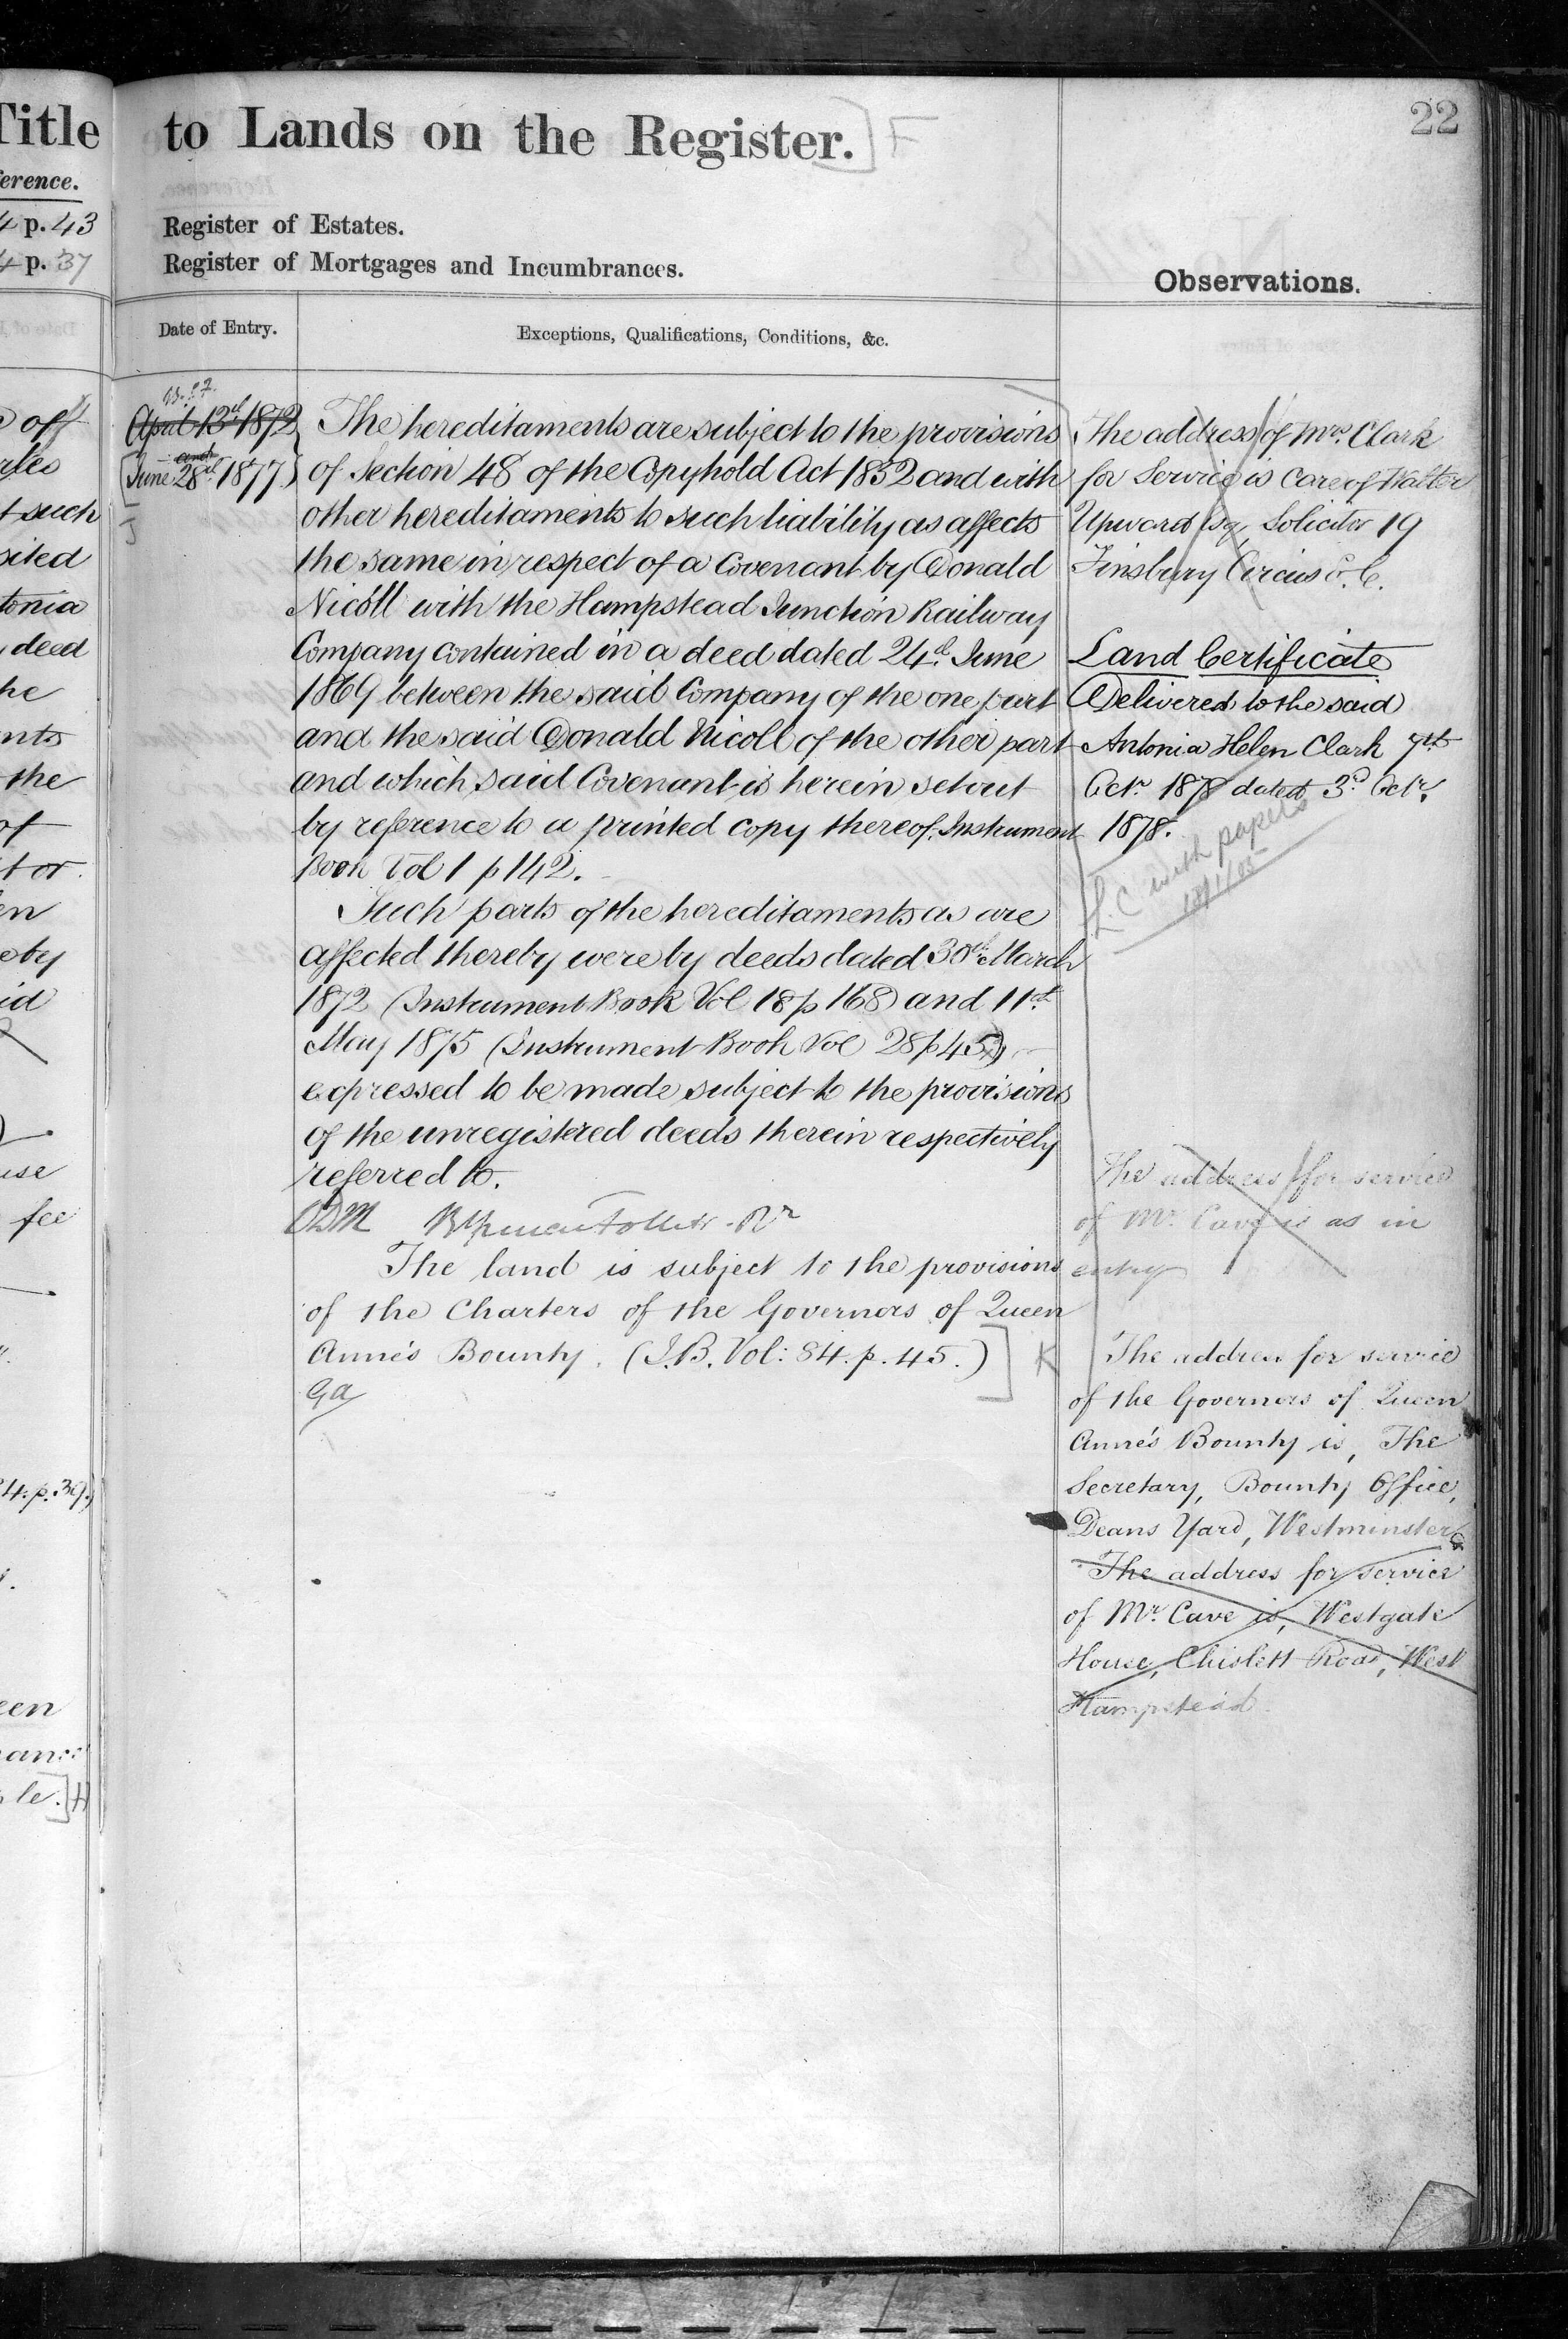 Title
erence.
4 p. 43
4 p. 37
off
rles
t such
sited
tonia
deed
he
nts
the
of
t or.
en
eby
id
use
fee
4. p. 39.)
een
le.] H
to Lands on the Register.] F
22
Register of Estates.
Register of Mortgages and Incumbrances.
Observations.
Date of Entry.
Exceptions, Qualifications, Conditions, &c.
April 12th 1872
and
[June 28th 1877
J
The hereditaments are subject to the provisions
of Section 48 of the Copyhold Act 1852 and with
other hereditaments to such liability as affects
the same in respect of a Covenant by Donald
Nicoll with the Hampstead Junction Railway
Company contained in a deed dated 24th June
1869 between the said Company of the one part
and the said Donald Nicoll of the other part
and which said Covenant is herein set out
by reference to a printed copy thereof. Instrument
Book Vol 1 p 142.
Such parts of the hereditaments as are
affected thereby were by deeds dated 30th March
1872 (Instrument Book Vol 18 p 168) and 11th
May 1875 (Instrument Book Vol 28 p 45)
expressed to be made subject to the provisions
of the unregistered deeds therein respectively
referred to.
The land is subject to the provisions
of the Charters of the Governors of Queen
Anne's Bounty. (I.B. Vol: 84. p. 45.) ] K
The address of Mrs. Clark
for Service is Care of Walter
Upward Esq, Solicitor 19
Finsbury Circus E.C.
Land Certificate
Delivered to the said
Antonia Helen Clark 7th
Octr. 1878 dated 3rd Octr.
1878.
L.C with papers
The address for service
of Mr. Cave is as in
entry
The address for service
of the Governors of Queen
Anne's Bounty is, The
Secretary, Bounty Office,
Deans Yard, Westminster
The address for service
of Mr. Cave is, Westgate
House, Chislett Road, West
Hampstead.